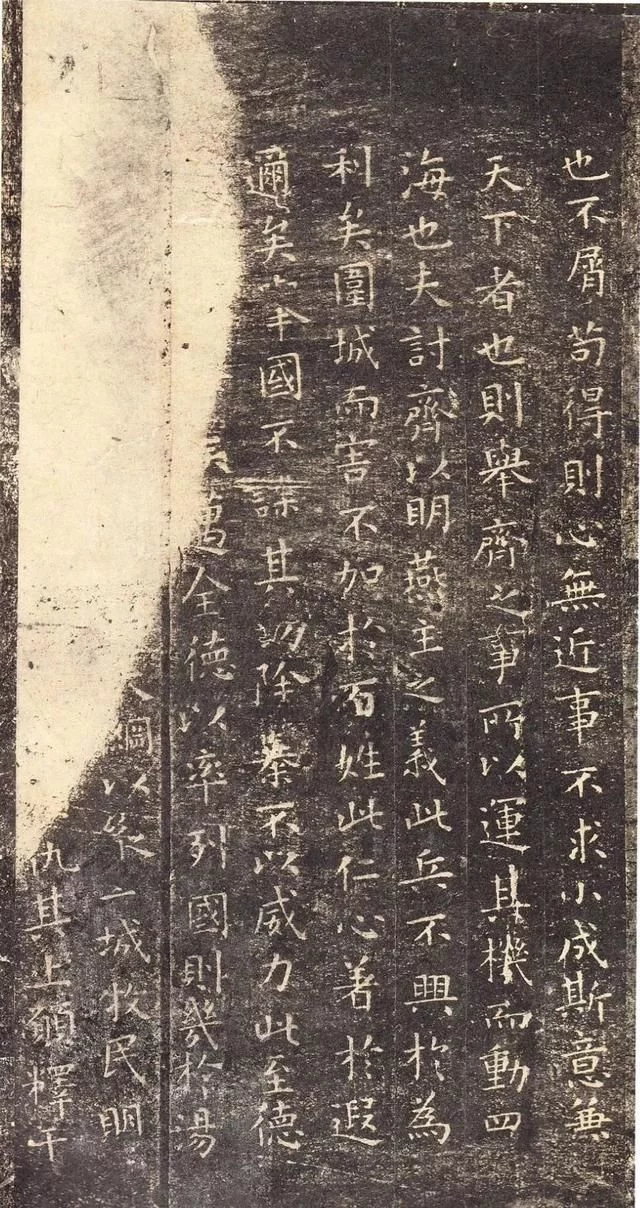 也不屑苟得則心無近事不求小成斯意兼
天下者也則舉齊之事所以運其機而動四
海也夫討齊以明燕主之義此兵不興於為
利矣圍城而害不加於百姓此仁心著於遐
邇矣 國不謀其功除暴不以威力此至德
全德以率列國則幾於湯
以 二城牧民明
仇其上願釋干